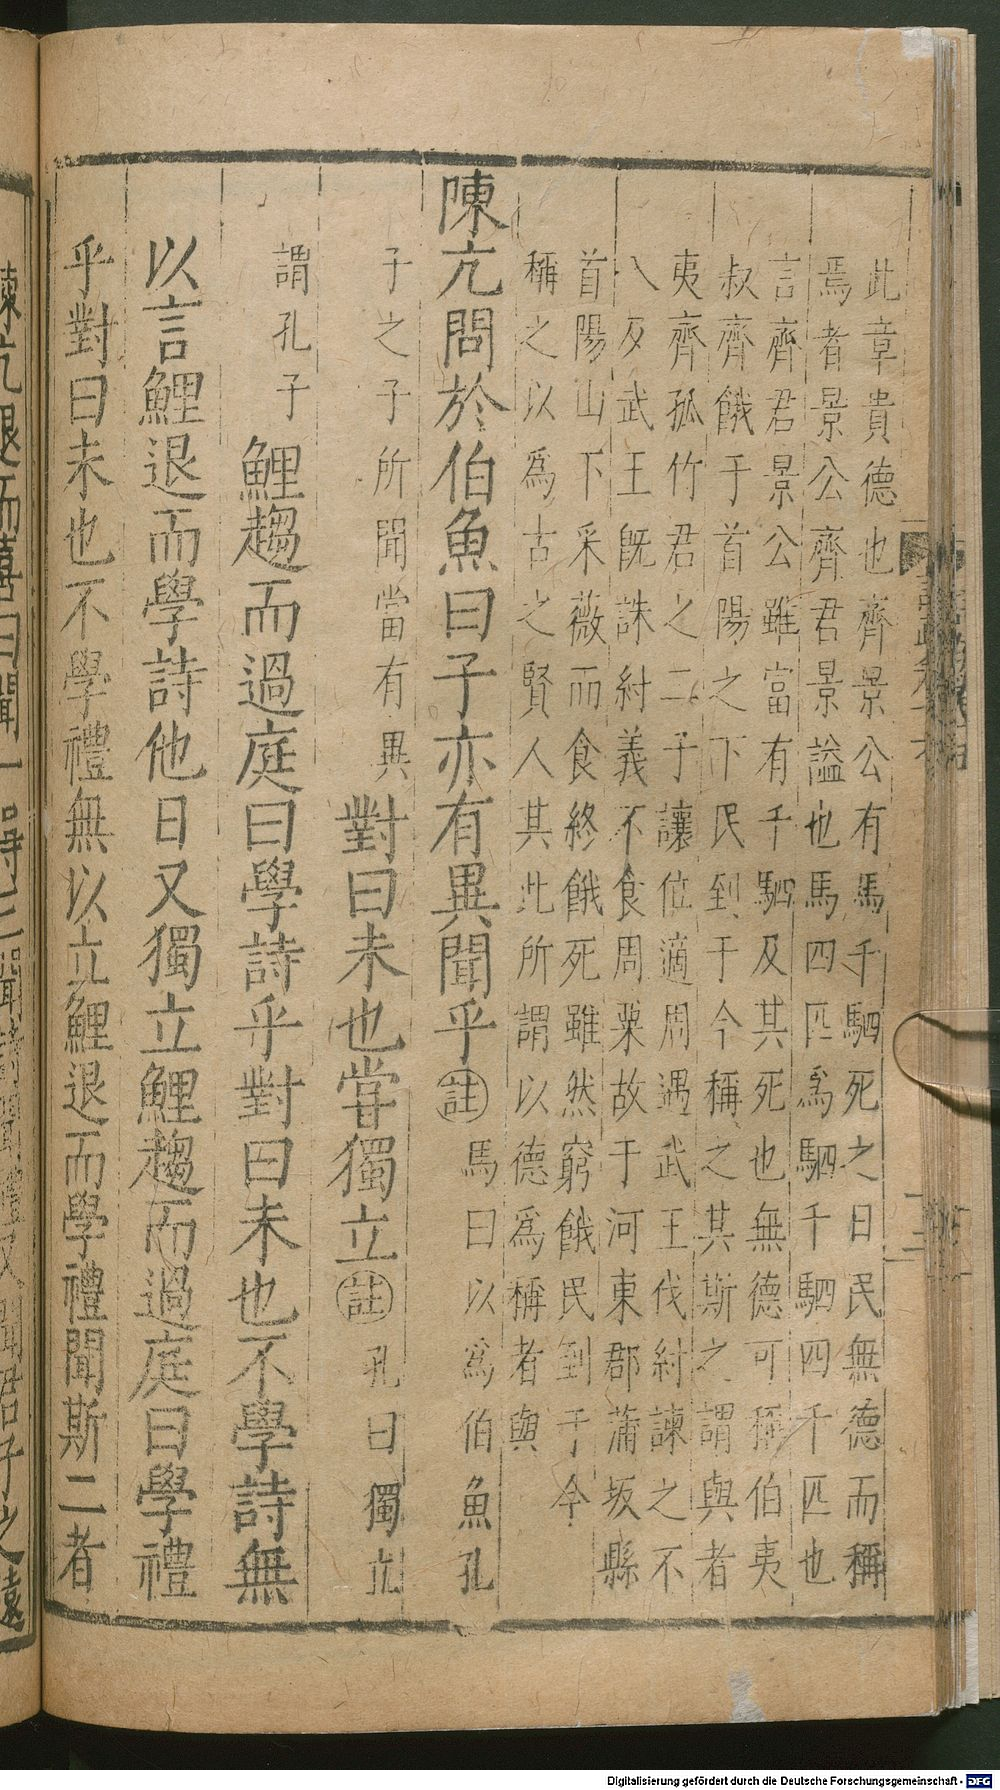 此章貴德也齊景公有馬千駟死之日民無德而稱
焉者景公齊君景謚也馬四匹爲駟千駟四千匹也
言齊君景公雖富有千駟及其死也無德可稱伯夷
叔齊餓于首陽之下民到于今稱之其斯之謂與者
夷齊孤竹君之二子讓位適周遇武王伐紂諫之不
八及武王既誅紂義不食周粟故于河東郡蒲坂縣
首陽山下采薇而食終餓死雖然窮餓民到于今
稱之以爲古之賢人其此所謂以德爲稱者與
陳亢問於伯魚曰子亦有異聞乎註馬曰以爲伯魚孔
子之子所聞當有異對曰未也嘗獨立註孔曰獨立
謂孔子鯉趨而過庭曰學詩乎對曰未也不學詩無
以言鯉退而學詩他日又獨立鯉趨而過庭曰學禮
乎對曰未也不學禮無以立鯉退而學禮聞斯二者
陳亢退而喜曰聞一得三聞詩聞禮又聞君子之遠
Digitalisierung gefördert durch die Deutsche Forschungsgemeinschaft - DFG